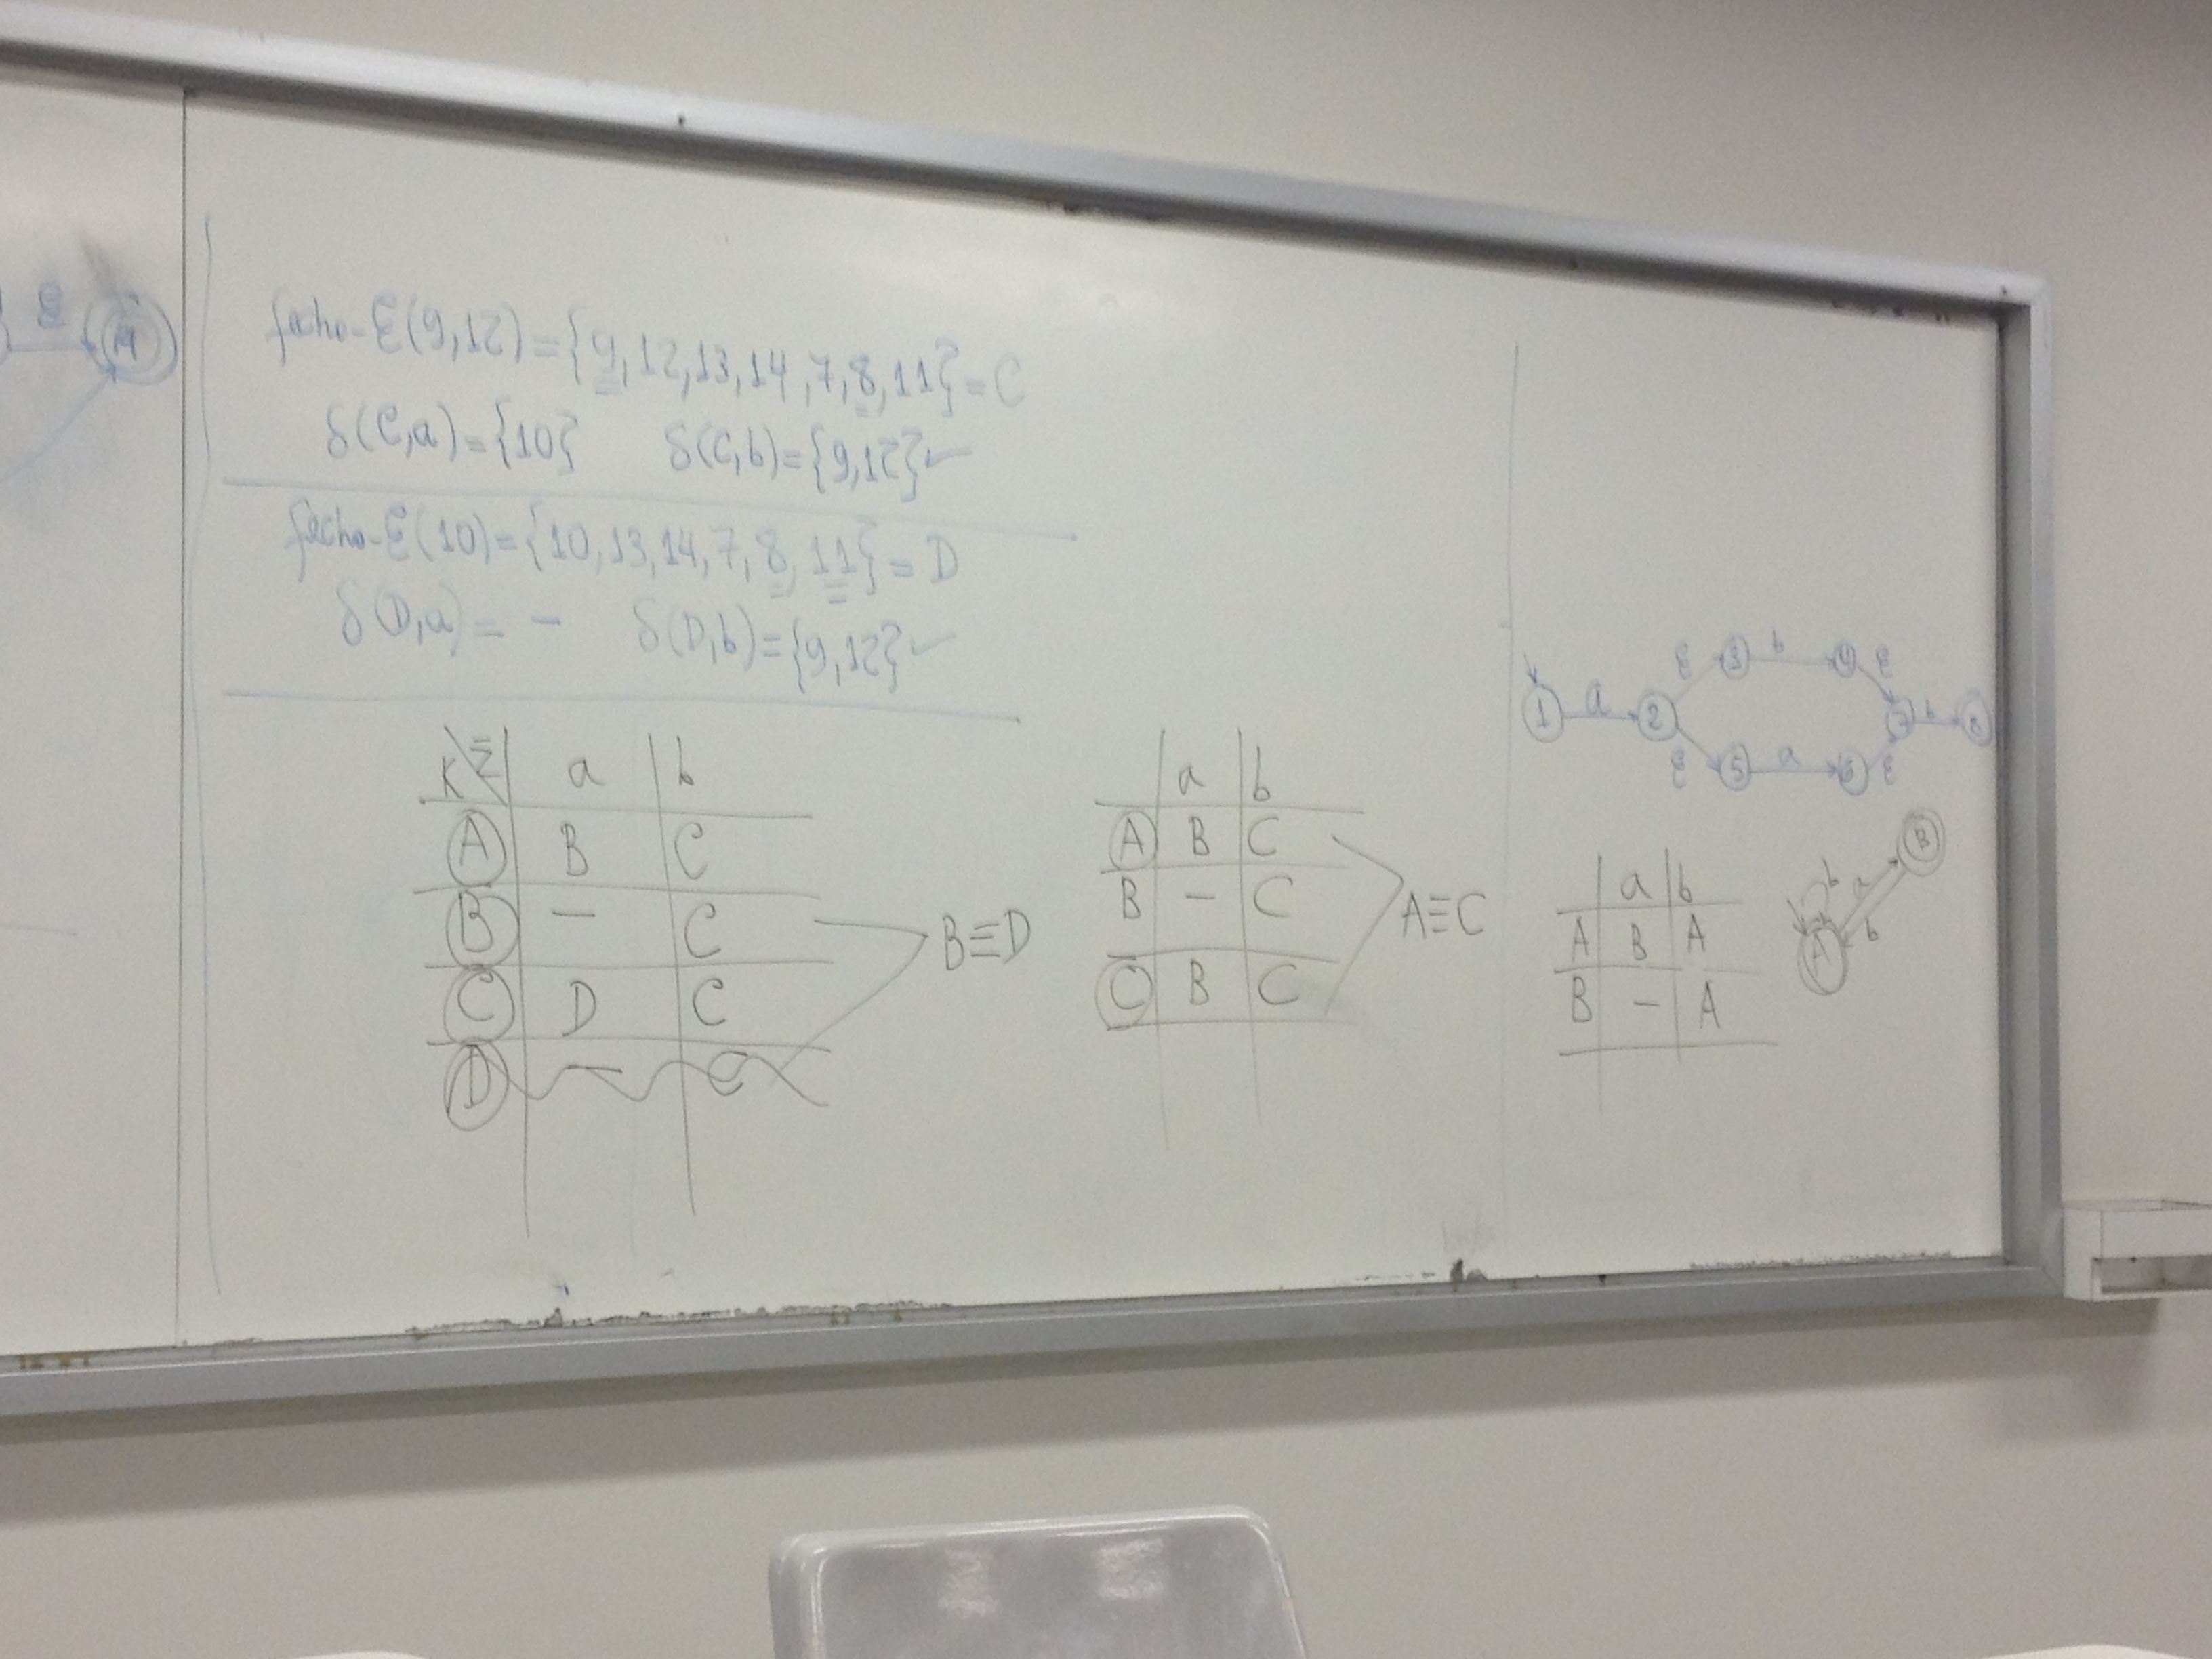 ε 14
fecho-ε(9,12)={9,12,13,14,7,8,11}=C
δ(C,a)={10} δ(C,b)={9,12}✓
fecho-ε(10)={10,13,14,7,8,11}=D
δ(D,a)= - δ(D,b)={9,12}✓
K\Σ a b
A B C
B - C
C D C
D - C
B≡D
a b
A B C
B - C
C B C
A≡C
ε 3 b 4 ε
1 a 2 7 b 8
ε 5 a 6 ε
a b
A B A
B - A
B
b a
A b